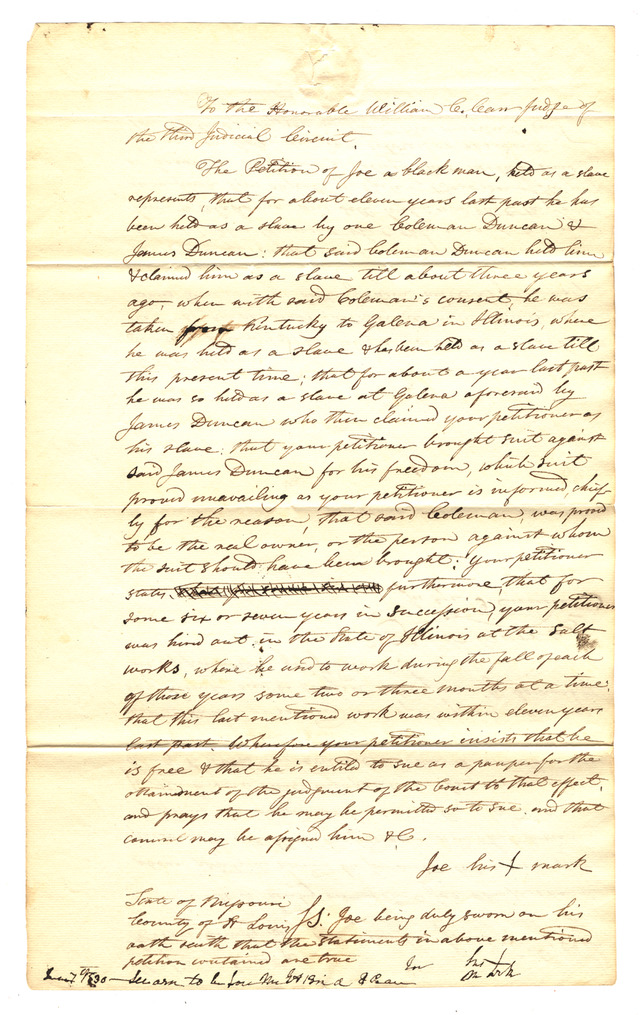 To the Honorable William C. Carr Judge of
the third Judicial Circuit.
The Petition of Joe a black man, held as a slave
represents, that for about eleven years last past he has
been held as a slave by one Coleman Duncan &
James Duncan: that said Coleman Duncan held him
& claimed him as a slave till about three years
ago, when with said Coleman's consent, he was
taken from Kentucky to Galena in Illinois, where
he was held as a slave & has been held as a slave till
this present time; that for about a year last past
he was so held as a slave at Galena aforesaid by
James Duncan who then claimed your petitioner as
his slave: that your petitioner brought suit against
said James Duncan for his freedom, which suit
proved unavailing as your petitioner is informed, chief-
ly for the reason, that said Coleman, was proved
to be the real owner, or the person against whom
the suit should have been brought: your petitioner
states, furthermore, that for
some six or seven years in succession, your petitioner
was hired out in the State of Illinois at the Salt
works, where he used to work during the fall of each
of those years some two or three months at a time:
that this last mentioned work was within eleven years
last past. Wherefore your petitioner insists that he
is free & that he is entitled to sue as a pauper for the
attainment of the judgment of the court to that effect,
and prays that he may be permitted so to sue, and that
counsel may be assigned him &c.
Joe his X mark
State of Missouri
County of St Louis SS. Joe being duly sworn on his
oath saith that the statements in above mentioned
petition contained are true
his X
Joe mark
30 Sworn to before me